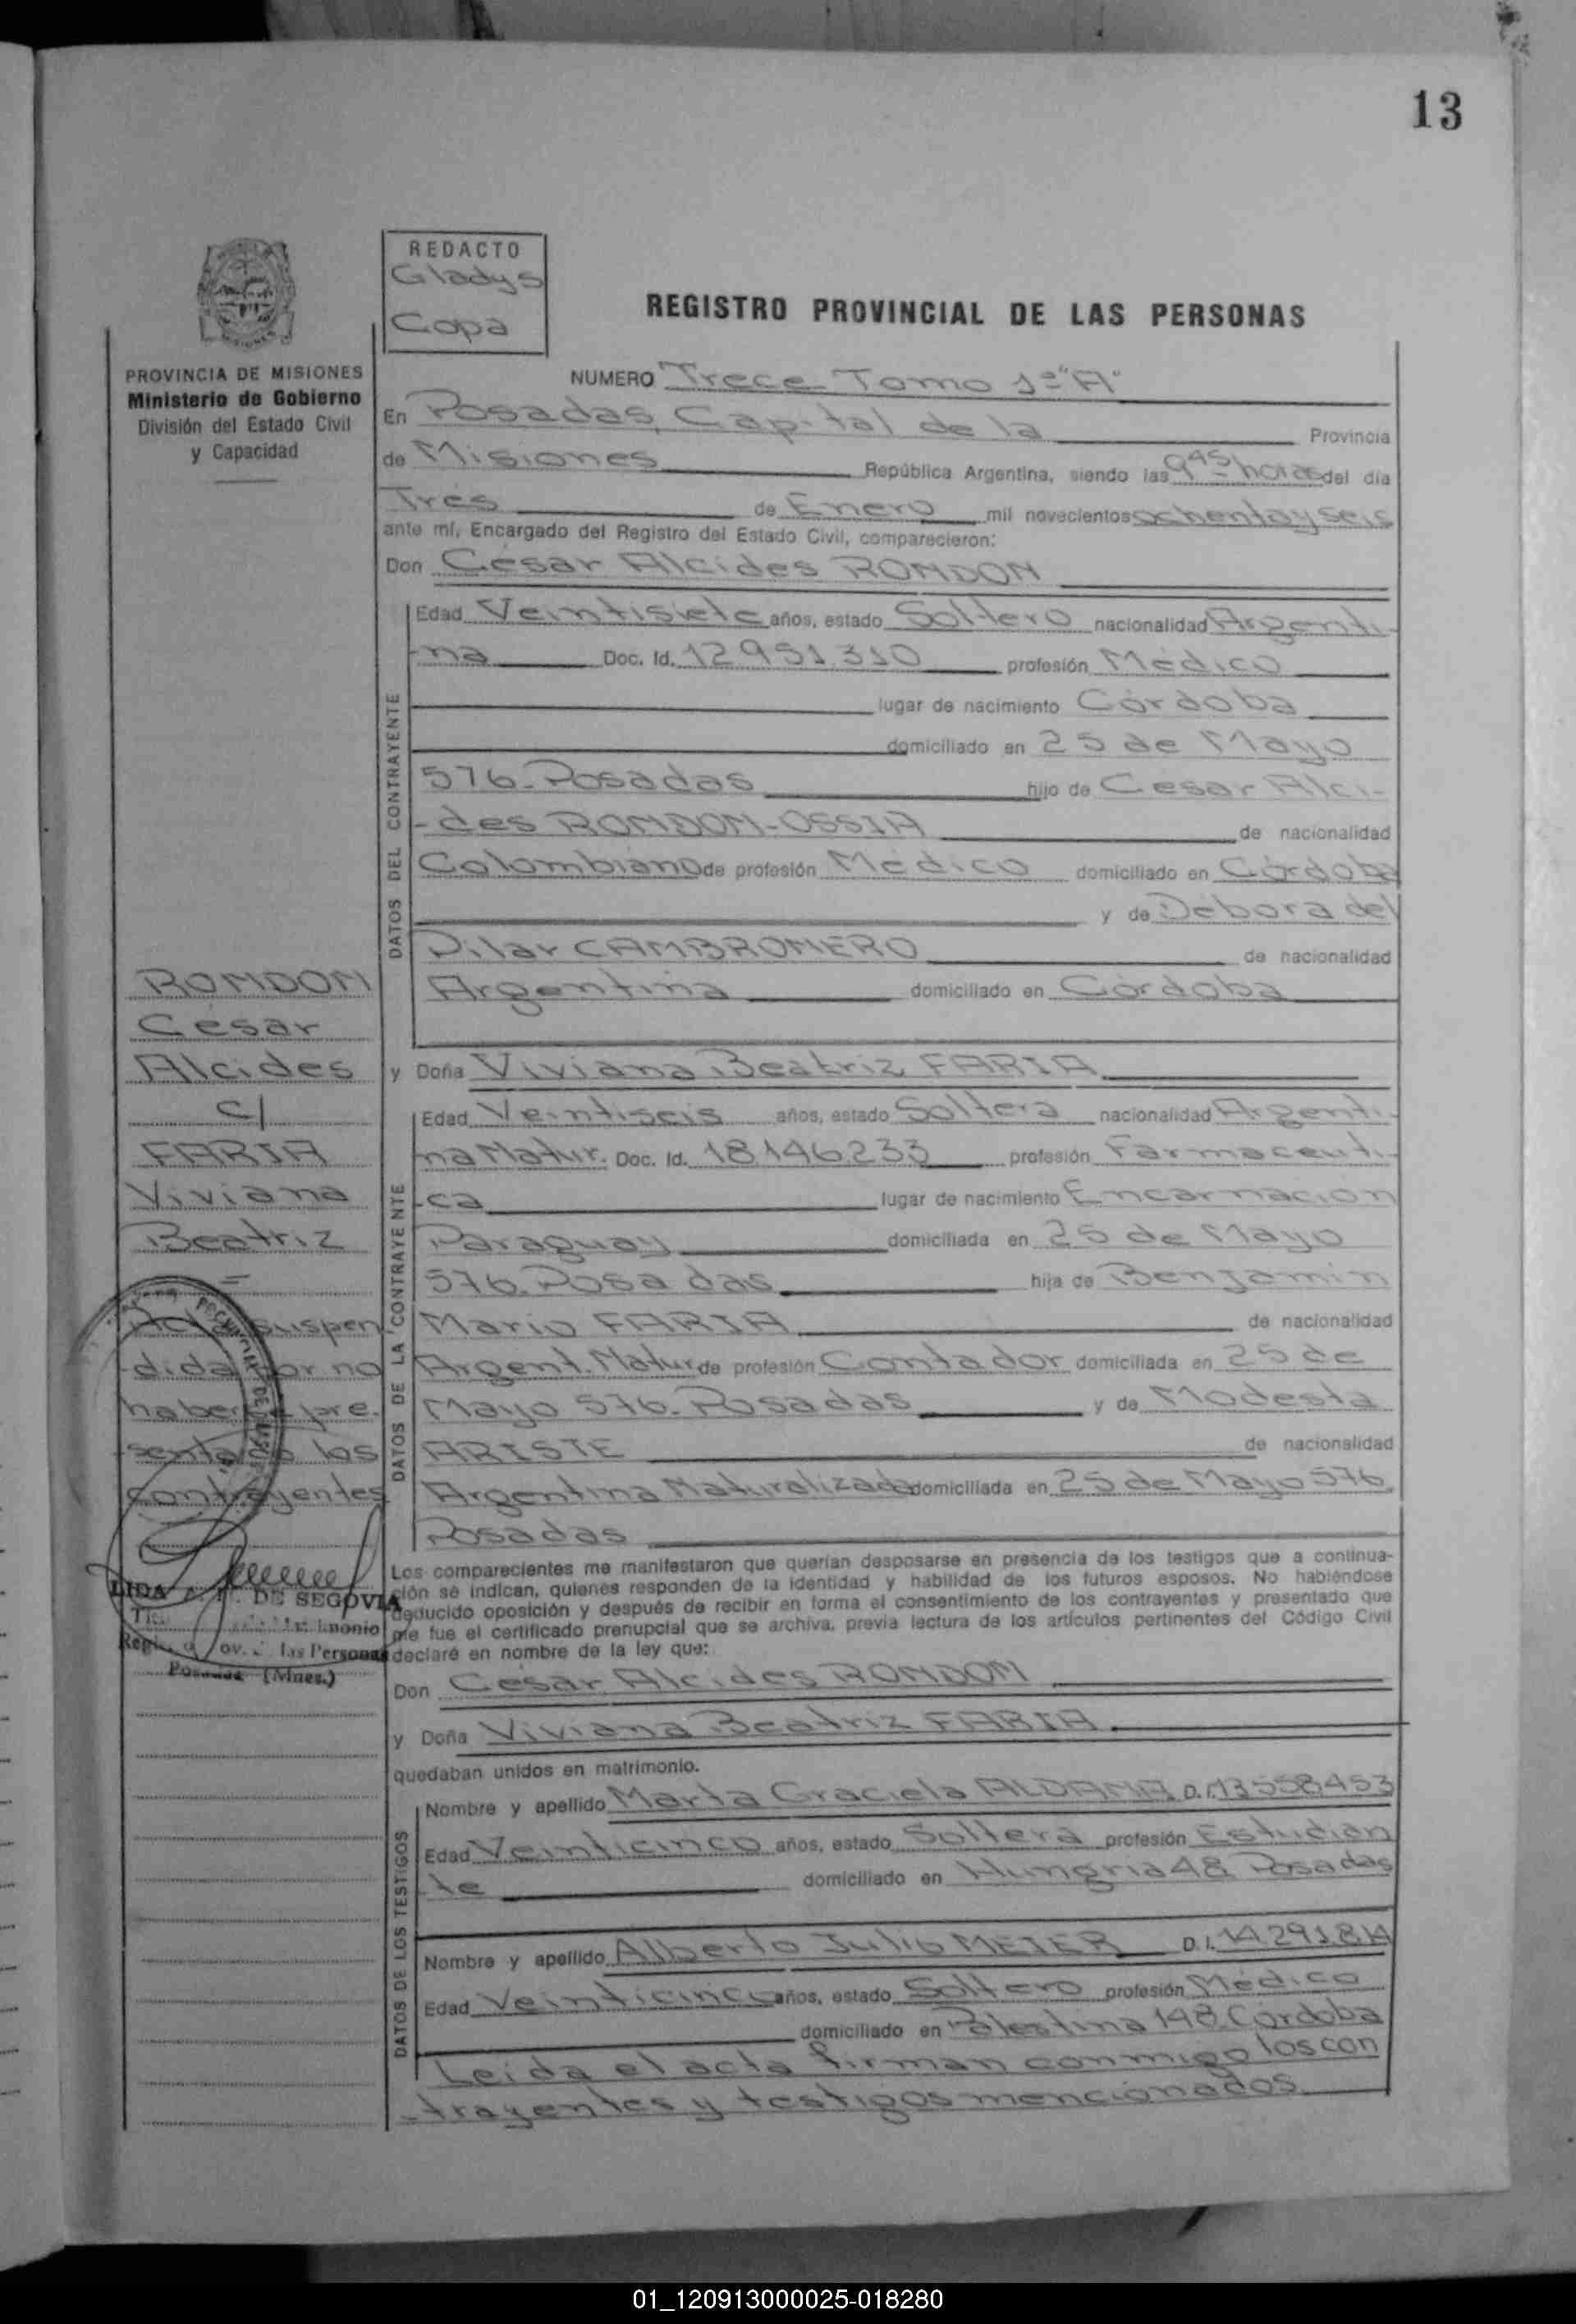 13
REDACTO
Gladys
Copa
REGISTRO PROVINCIAL DE LAS PERSONAS
PROVINCIA DE MISIONES
Ministerio de Gobierno
División del Estado Civil
y Capacidad
NUMERO Trece Tomo 1º "A"
En Posadas, Capital de la Provincia
de Misiones República Argentina, siendo las 9 45 horas del día
Tres de Enero mil novecientos ochenta y seis
ante mí, Encargado del Registro del Estado Civil, comparecieron:
Don César Alcides RONDON
DATOS DEL CONTRAYENTE
Edad Veintisiete años, estado Soltero nacionalidad Argenti-
-na Doc. Id. 12951310 profesión Médico
lugar de nacimiento Córdoba
domiciliado en 25 de Mayo
576-Posadas hijo de Cesar Alci-
-des RONDON-OSSIA de nacionalidad
Colombiano de profesión Médico domiciliado en Córdoba
y de Debora del
Pilar CAMBRONERO de nacionalidad
Argentina domiciliado en Córdoba
RONDON
César
Alcides
c/
FARIA
Viviana
Beatriz
y Doña Viviana Beatriz FARIA
DATOS DE LA CONTRAYENTE
Edad Veintiseis años, estado Soltera nacionalidad Argenti-
na Natur. Doc. Id. 18146233 profesión Farmaceuti-
-ca lugar de nacimiento Encarnación
Paraguay domiciliada en 25 de Mayo
576. Posadas hija de Benjamin
Mario FARIA de nacionalidad
Argent. Natur de profesión Contador domiciliada en 25 de
Mayo 576. Posadas y de Modesta
ARISTE de nacionalidad
Argentina Naturalizada domiciliada en 25 de Mayo 576.
Posadas
Acta suspen
-dida por no
haberse pre-
-sentado los
contrayentes
LIDA DE SEGOVIA
Posadas (Mnes.)
Los comparecientes me manifestaron que querían desposarse en presencia de los testigos que a continua-
ción se indican, quienes responden de la identidad y habilidad de los futuros esposos. No habiéndose
deducido oposición y después de recibir en forma el consentimiento de los contrayentes y presentado que
me fue el certificado prenupcial que se archiva, previa lectura de los artículos pertinentes del Código Civil
declaré en nombre de la ley que:
Don César Alcides RONDON
y Doña Viviana Beatriz FARIA
quedaban unidos en matrimonio.
DATOS DE LOS TESTIGOS
Nombre y apellido Marta Graciela ALDANA D.I. 13558453
Edad Veinticinco años, estado Soltera profesión Estudian
-te domiciliado en Hungria 48 Posadas
Nombre y apellido Alberto Julio MEIER D.I. 14291814
Edad Veinticinco años, estado Soltero profesión Médico
domiciliado en Palestina 148. Córdoba
Leida el acta firman conmigo los con
-trayentes y testigos mencionados.
01_120913000025-018280